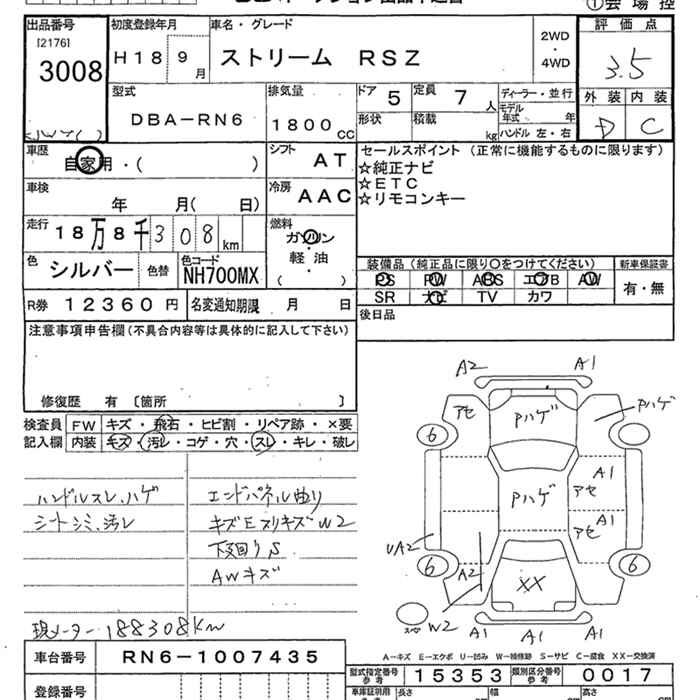 ①会場控
出品番号
[2176]
3008
初度登録年月
H18 9月
車名・グレード
ストリーム RSZ
2WD
・
4WD
評価点
3.5
外装 内装
D C
型式
DBA-RN6
排気量
1800cc
ドア 5
定員 7人
形状
積載 kg
ディーラー・並行
モデル年式 年
ハンドル 左・右
車歴
自家用・( )
シフト
AT
セールスポイント (正常に機能するものに限ります)
☆純正ナビ
☆ETC
☆リモコンキー
車検
年 月( 日)
冷房
AAC
走行
18万8千308km
燃料
ガソリン
軽・油
( )
色
シルバー
色替
色コード
NH700MX
装備品 (純正品に限り〇をつけてください)
新車保証書
PS PW ABS エアB AW
SR ナビ TV カワ
有・無
R券 12360円
名変通知期限 月 日
後日品
注意事項申告欄 (不具合内容等は具体的に記入して下さい)
修復歴 有 〔箇所 〕
検査員記入欄
FW キズ・飛石・ヒビ割・リペア跡・×要
内装 キズ・汚レ・コゲ・穴・スレ・キレ・破レ
ハンドルスレ、ハゲ
シートシミ、汚レ
エンドパネル曲り
キズEスリキズW2
下回りS
AWキズ
現メーター188308Km
A2 A1
アセ Pハゲ Pハゲ
6
Pハゲ
A1
アセ
A1
アセ
UA2
6 6
A2
XX
スペア
W2 A1 A1
A-キズ E-エクボ U-凹み W-補修跡 S-サビ C-腐食 XX-交換済
車台番号 RN6-1007435
型式指定番号 参考 15353
類別区分番号 参考 0017
登録番号
車庫証明用 長さ 幅 高さ